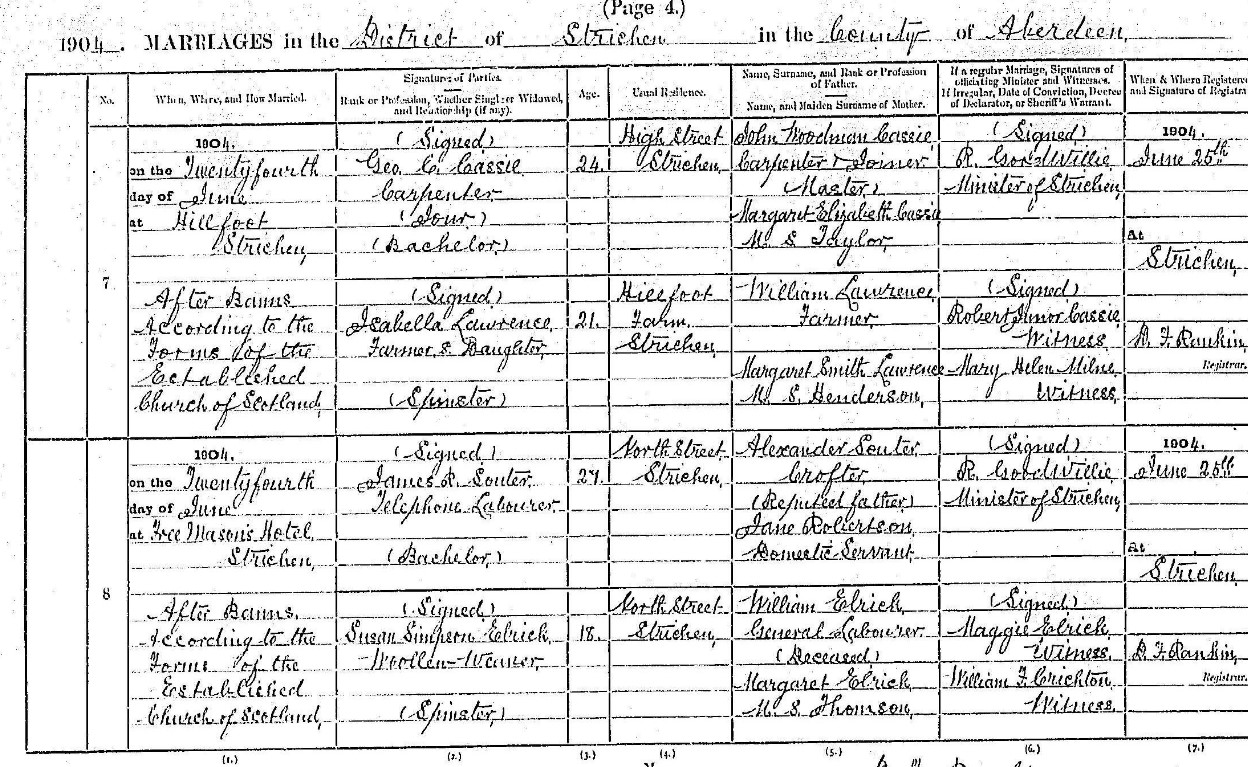 (Page 4.)
1904. MARRIAGES in the District of Strichen in the County of Aberdeen,
No.
When, Where, and How Married.
Signatures of Parties.
Rank or Profession, Whether Single or Widowed, and Relationship (if any).
Age.
Usual Residence.
Name, Surname, and Rank or Profession of Father.
Name, and Maiden Surname of Mother.
If a regular Marriage, Signatures of officiating Minister and Witnesses.
If Irregular, Date of Conviction, Decree of Declarator, or Sheriff's Warrant.
When & Where Registered and Signature of Registra
7
1904.
on the Twentyfourth
day of June
at Hillfoot
Strichen,
After Banns
According to the
Forms of the
Established
Church of Scotland,
(Signed)
Geo. C. Cassie
Carpenter
(Jour)
(Bachelor)
(Signed)
Isabella Lawrence,
Farmer's Daughter,
(Spinster)
24.
21.
High Street
Strichen,
Hillfoot
Farm,
Strichen,
John Woodman Cassie,
Carpenter & Joiner
(Master)
Margaret Elizabeth Cassie
M. S. Taylor,
William Lawrence,
Farmer,
Margaret Smith Lawrence
M. S. Henderson,
(Signed)
R. Goodwillie,
Minister of Strichen,
(Signed)
Robert Cassie,
Witness,
Mary Helen Milne,
Witness,
1904.
June 25th
At
Strichen,
D. F. Rankin,
Registrar.
8
1904.
on the Twentyfourth
day of June
at Free Mason's Hotel,
Strichen,
After Banns,
According to the
Forms of the
Established
Church of Scotland,
(Signed)
James R. Souter,
Telephone Labourer,
(Bachelor,)
(Signed)
Susan Simpson Elrick,
Woollen-Weaver,
(Spinster,)
27.
18.
North Street
Strichen,
North Street
Strichen,
Alexander Souter
Crofter,
(Reputed father)
Jane Robertson,
Domestic Servant,
William Elrick,
General Labourer,
(Deceased)
Margaret Elrick,
M. S. Thomson,
(Signed)
R. Goodwillie,
Minister of Strichen,
(Signed)
Maggie Elrick,
Witness,
William F. Crichton,
Witness,
1904.
June 25th
At
Strichen,
D. F. Rankin,
Registrar.
(1.) (2.) (3.) (4.) (5.) (6.) (7.)